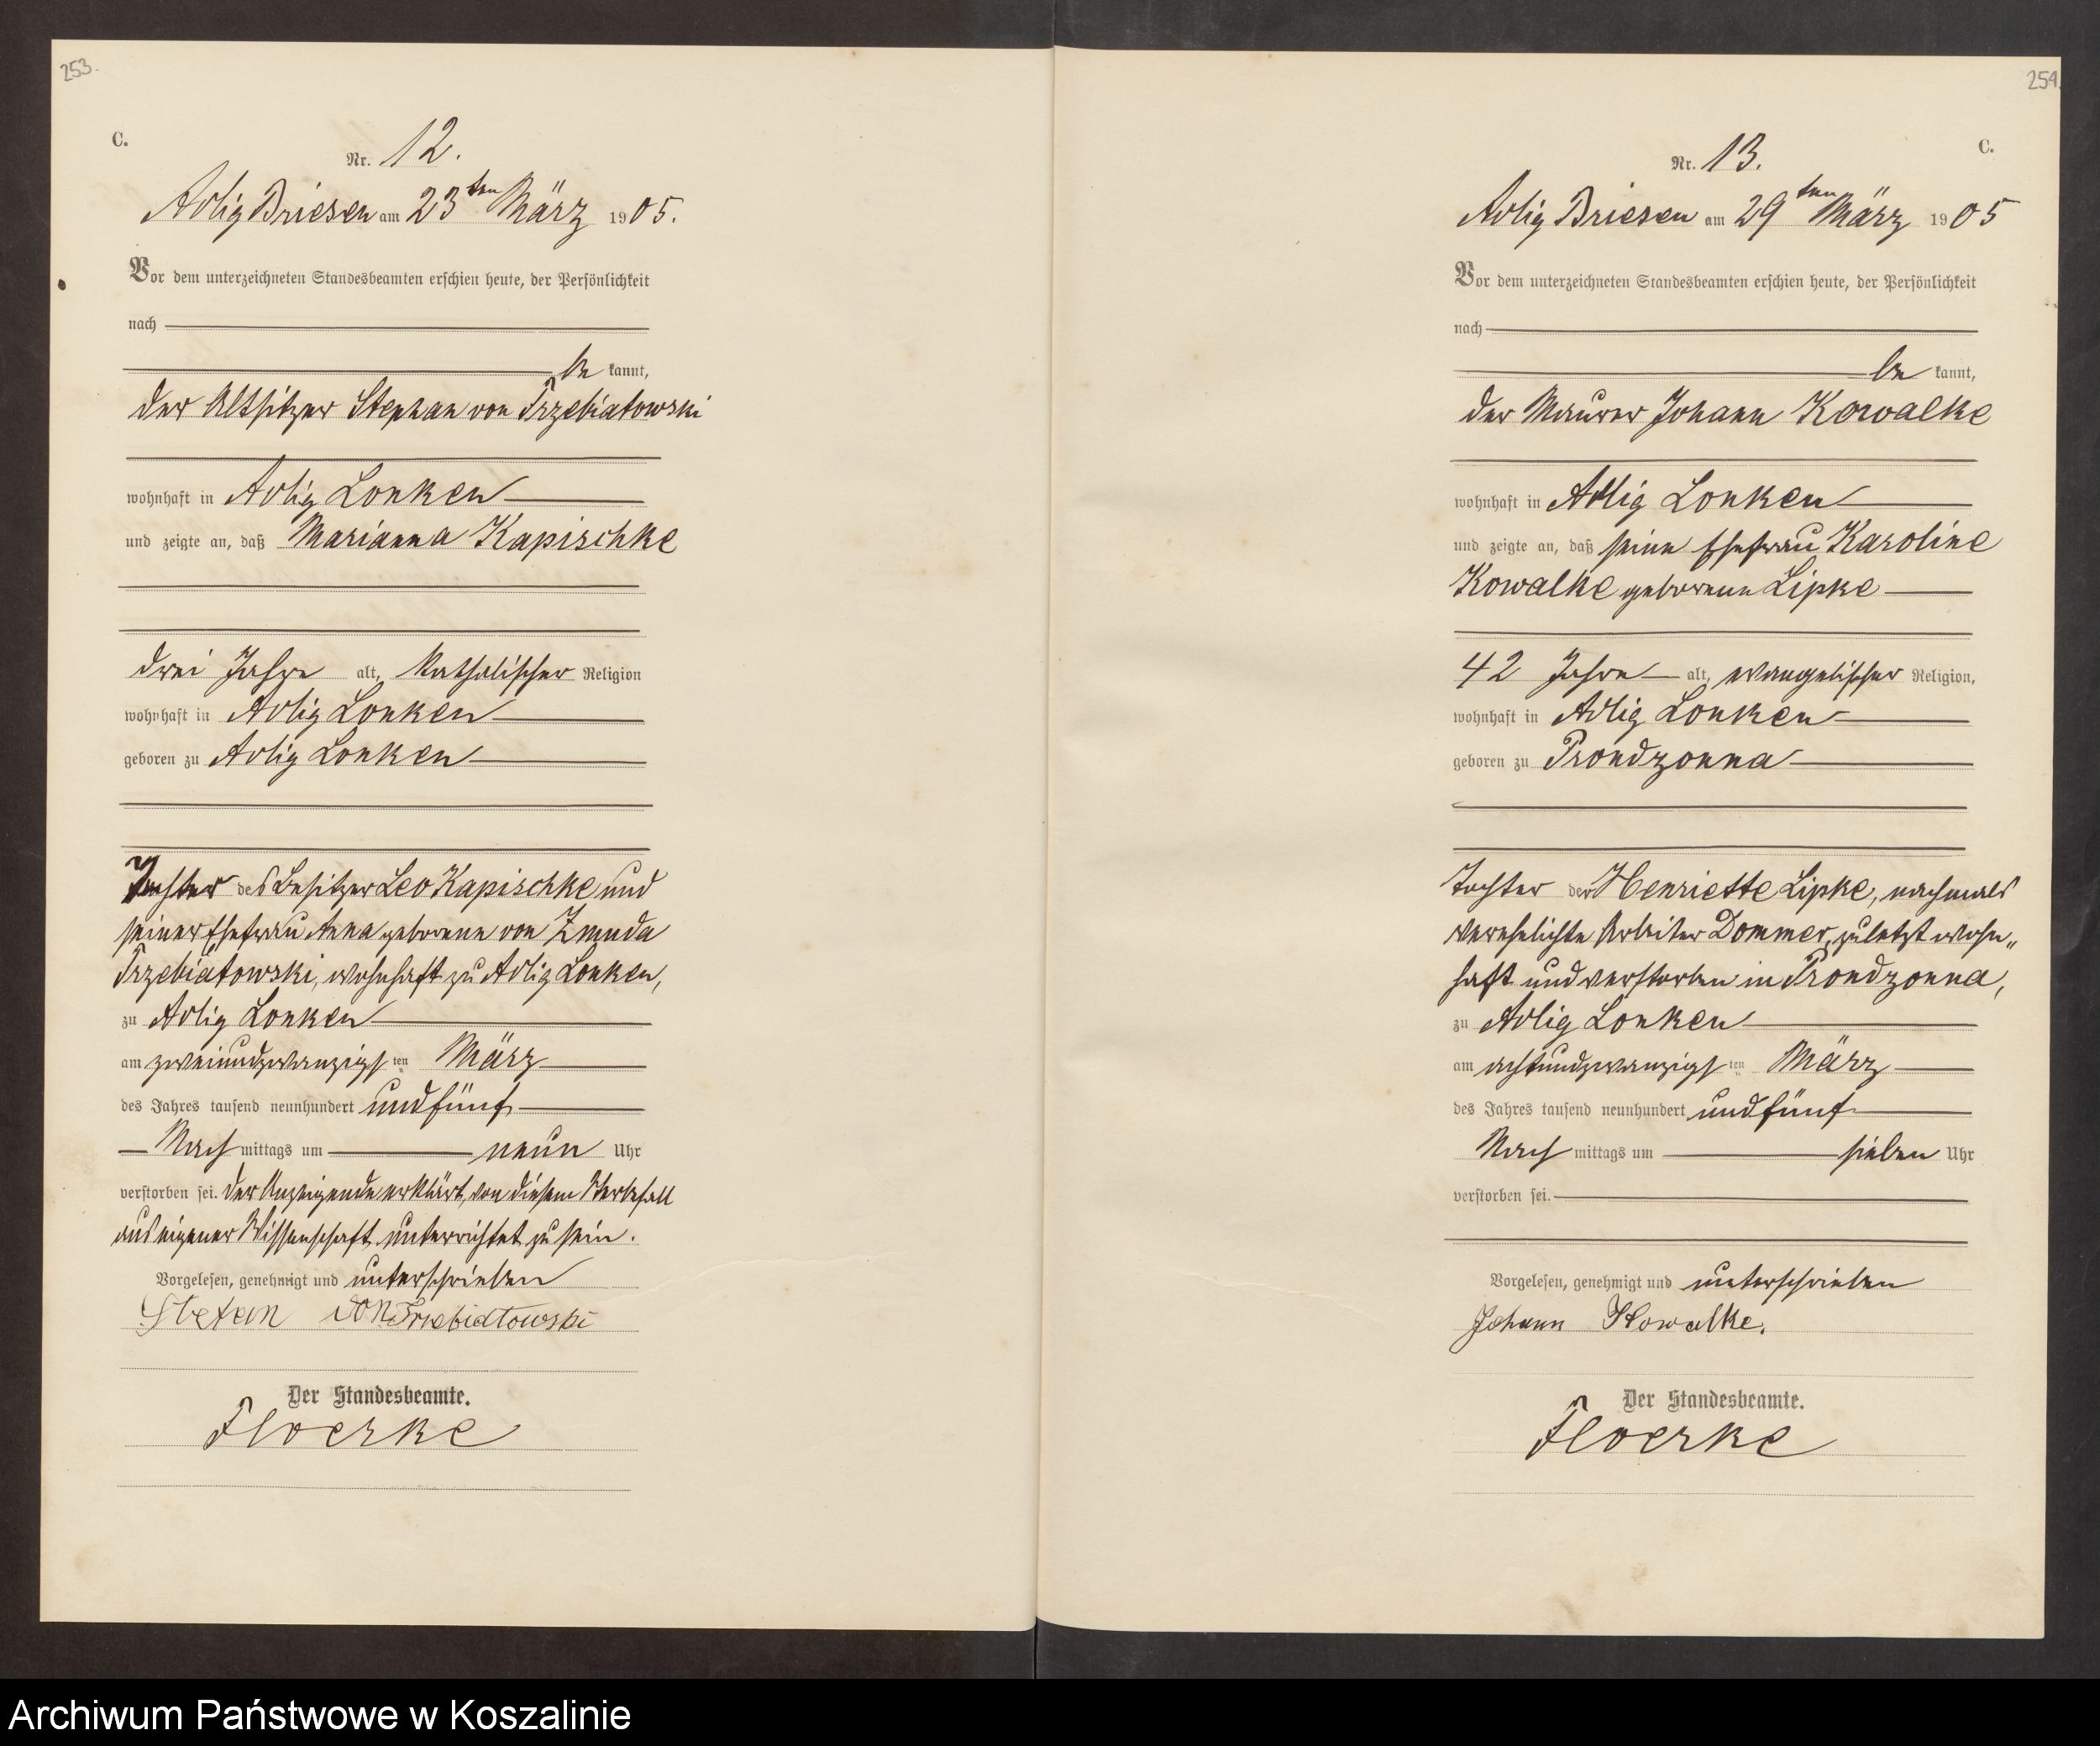 253.
C.
Nr. 12.
Adlig Briesen am 23ten März 1905.
Vor dem unterzeichneten Standesbeamten erschien heute, der Persönlichkeit
nach
be kannt,
der Altsitzer Stephan von Trzebiatowski
wohnhaft in Adlig Lonken
und zeigte an, daß Marianna Kapischke
drei Jahre alt, katholischer Religion
wohnhaft in Adlig Lonken
geboren zu Adlig Lonken
Tochter des Besitzer Leo Kapischke und
seiner Ehefrau Anna geborene von Zmuda
Trzebiatowski, wohnhaft zu Adlig Lonken,
zu Adlig Lonken
am zweiundzwanzigsten März
des Jahres tausend neunhundert und fünf
Nachmittags um neun Uhr
verstorben sei. Der Anzeigende erklärt, von diesem Sterbefall
aus eigener Wissenschaft unterrichtet zu sein.
Vorgelesen, genehmigt und unterschrieben
Stefan von Trzebiatowski
Der Standesbeamte.
Floerke
254.
C.
Nr. 13.
Adlig Briesen am 29ten März 1905
Vor dem unterzeichneten Standesbeamten erschien heute, der Persönlichkeit
nach
be kannt,
der Maurer Johann Kowalke
wohnhaft in Adlig Lonken
und zeigte an, daß seine Ehefrau Karoline
Kowalke geborene Lipke
42 Jahre alt, evangelischer Religion,
wohnhaft in Adlig Lonken
geboren zu Prondzonna
Tochter der Henriette Lipke, nachmals
verehelichte Arbeiter Dommer, zuletzt wohn„
haft und verstorben in Prondzonna,
zu Adlig Lonken
am achtundzwanzigsten März
des Jahres tausend neunhundert und fünf
Nachmittags um sieben Uhr
verstorben sei.
Vorgelesen, genehmigt und unterschrieben
Johann Kowalke.
Der Standesbeamte.
Floerke
Archiwum Państwowe w Koszalinie